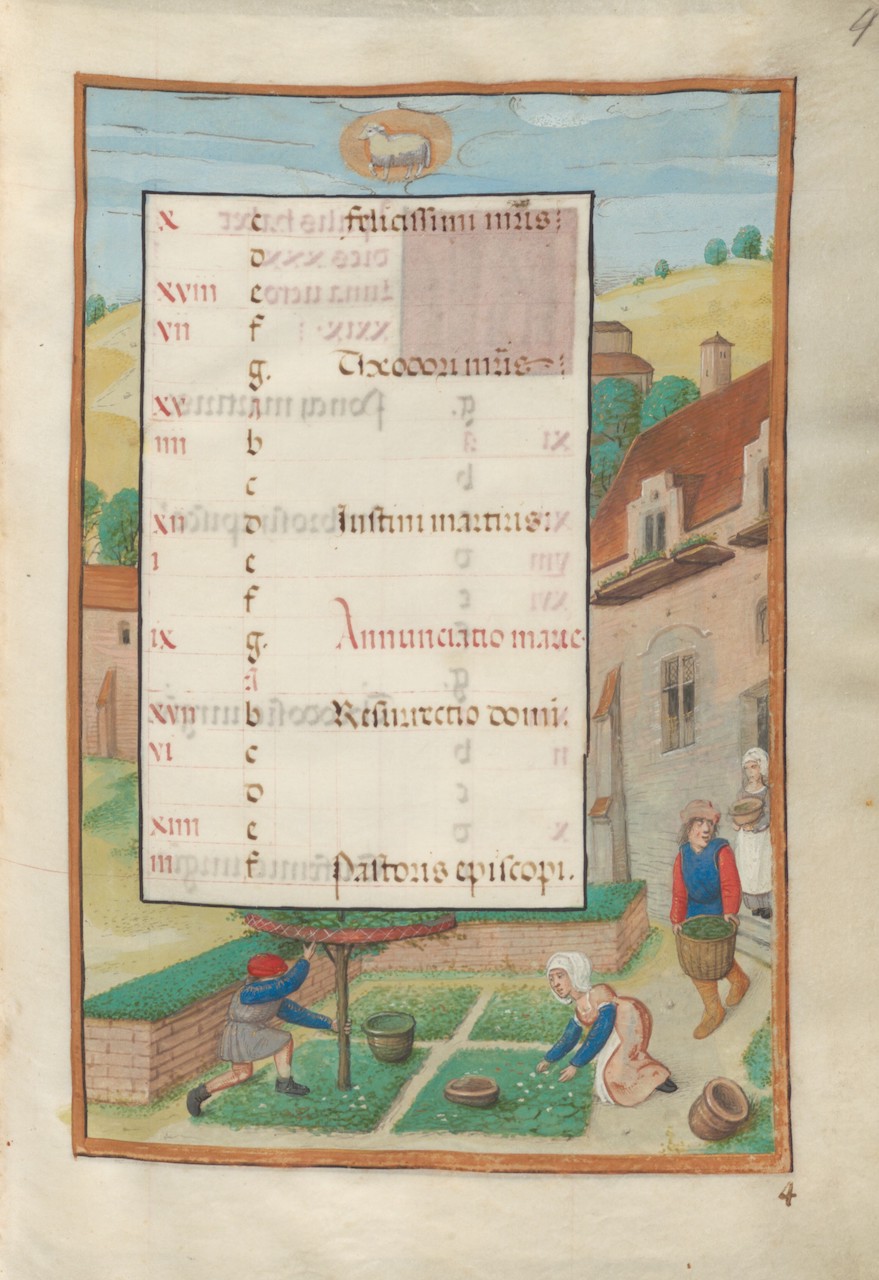 4
x c felicissimi mris:
d
xviii e
vii f
g. Theodori mris:
xv A
iiii b
c
xii d Iustini martiris:
i e
f
ix g. Annunciatio marie
A
xvii b Resurrectio domi:
vi c
d
xiiii e
iii f Pastoris episcopi.
4